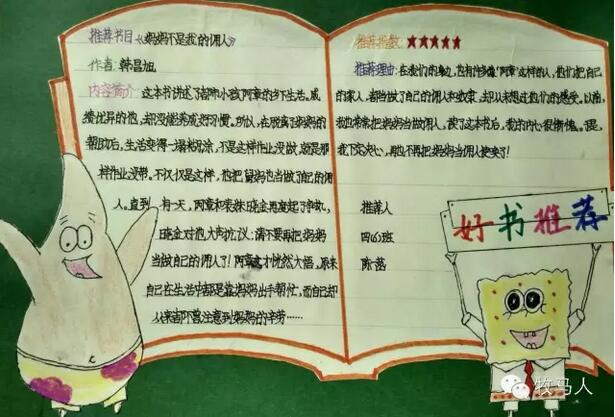 推荐书目《妈妈不是我的佣人》
作者：韩昌旭
内容简介：这本书讲述了
阿章的
生活。成
绩优异的他，却没能养成好习惯。所以，在脱离了妈妈的
帮助后，生活变得一塌糊涂，不是这样作业没做，就是那
样作业没带。不仅仅是这样，他把
妈也当做了自己的佣
人。直到有一天，阿章和表妹
金再度起了争执，
金对他大声抗议：请不要再把妈妈
当做自己的佣人了！阿章这才恍然大悟，原来
自己在生活中都是靠妈妈出手帮忙，而自己却
从来都不曾注意到妈妈的辛劳……
推荐指数：★★★★★
推荐理由：在我们的身边，也有许多像“阿章”这样的人，他们把自己
的家人，都当做了自己的佣人和奴隶，却从未想过他们的感受。以前，
我也常常把妈妈当做佣人，读了这本书后，我的内心很惭愧。于是，
我下定决心，再也不把妈妈当佣人使唤了！
推荐人
四(6)班
陈
好书推荐
牧马人